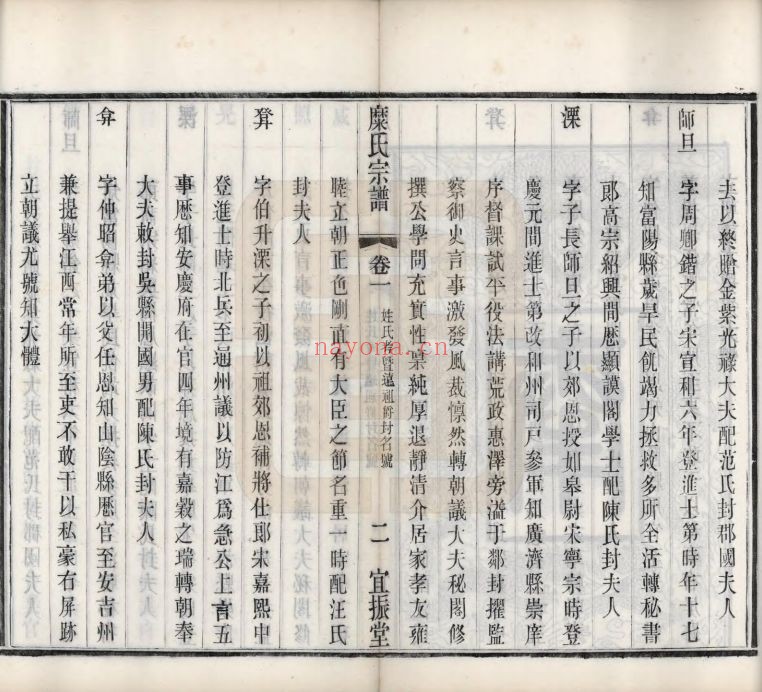 去以終贈金紫光祿大夫配范氏封郡國夫人
師旦
字周卿鍇之子宋宣和六年登進士第時年十七
知富陽縣歲旱民飢竭力拯救多所全活轉秘書
郎高宗紹興間歷顯謨閣學士配陳氏封夫人
溧
字子長師旦之子以郊恩授如皋尉宋寧宗時登
慶元間進士第改和州司戶參軍知廣濟縣崇庠
序督課試平役法講荒政惠澤旁溢于鄰封擢監
察御史言事激發風裁懍然轉朝議大夫秘閣修
撰公學問充實性稟純厚退靜清介居家孝友雍
糜氏宗譜
卷一
姓氏考暨遠祖爵封名號
二
宜振堂
睦立朝正色剛直有大臣之節名重一時配汪氏
封夫人
弇
字伯升溧之子初以祖郊恩補將仕郎宋嘉熙中
登進士時北兵至通州議以防江爲急公上言五
事歷知安慶府在官四年境有嘉穀之瑞轉朝奉
大夫敕封吳縣開國男配陳氏封夫人
弇
字仲昭弇弟以父任恩知山陰縣歷官至安吉州
兼提舉江西常年所至吏不敢干以私豪右屏跡
立朝議尤號知大體
nayona.cn